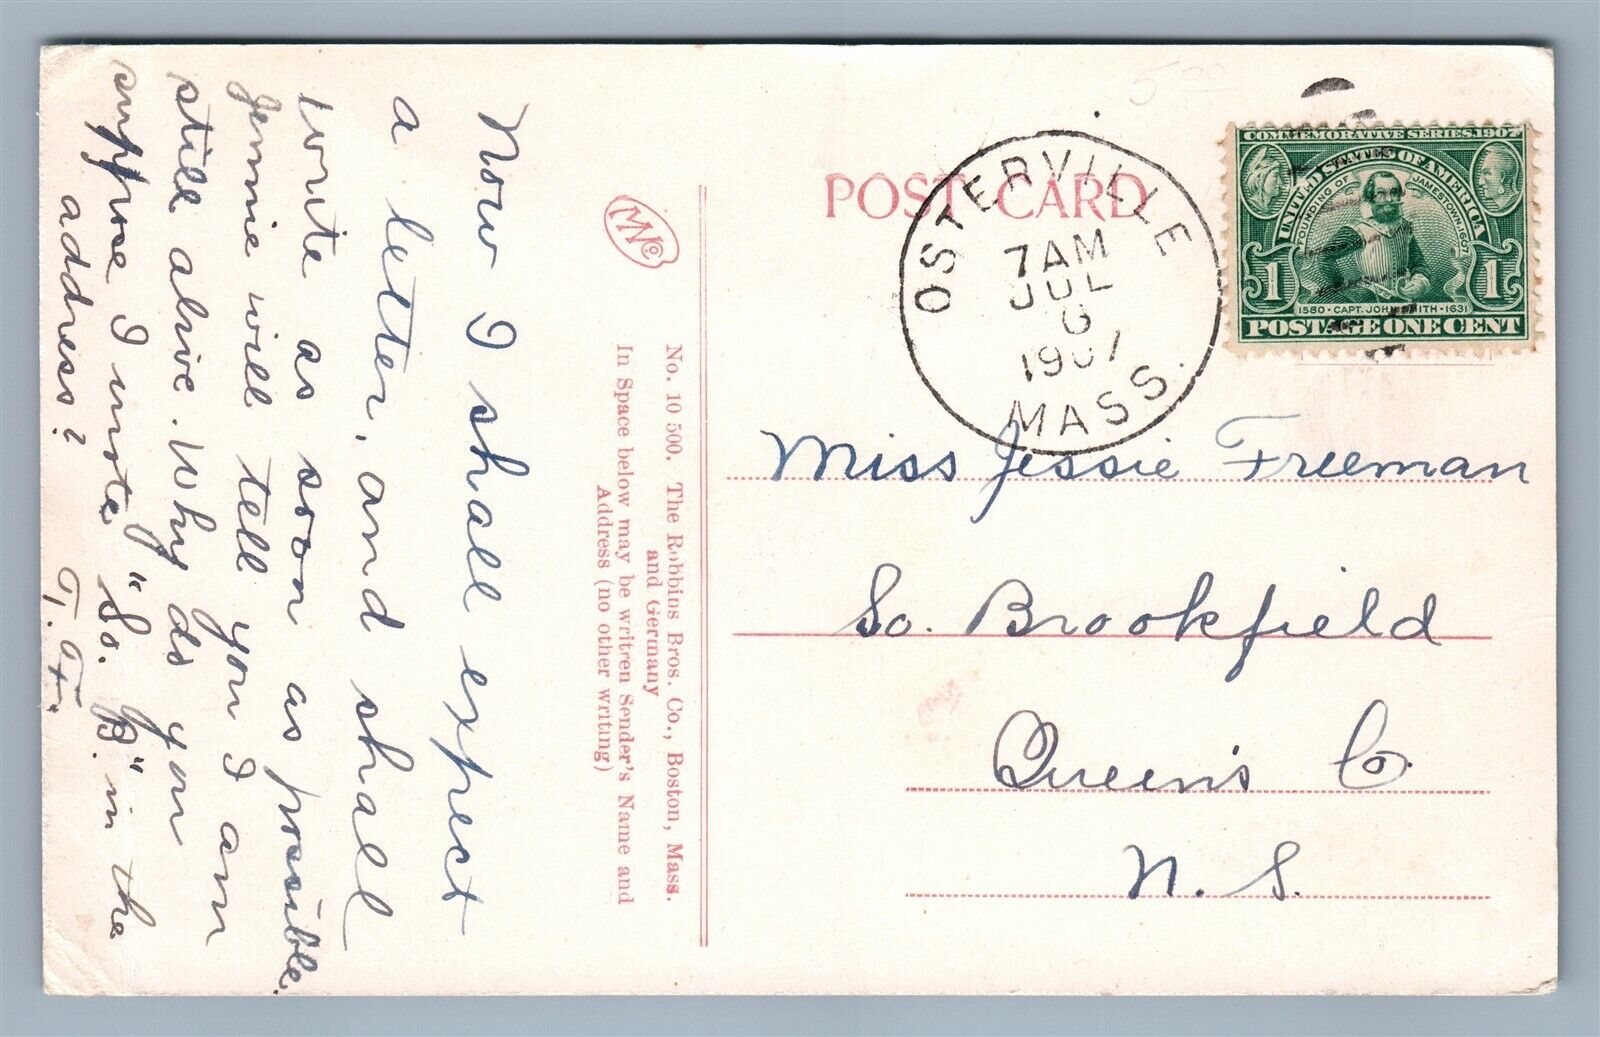 Now I shall expect
a letter, and shall
write as soon as possible.
Jennie will tell you I am
still alive. Why do you
suppose I wrote "So. B." in the
address?
T. F.
MNCo
No. 10 500. The Robbins Bros. Co., Boston, Mass.
and Germany
In Space below may be written Sender's Name and
Address (no other writing)
5 00
POST CARD
OSTERVILLE
7 AM
JUL
6
1907
MASS.
COMMEMORATIVE SERIES, 1907
UNITED STATES OF AMERICA
FOUNDING OF JAMESTOWN, 1607
1 1
1580 · CAPT. JOHN SMITH · 1631
POSTAGE ONE CENT
Miss Jessie Freeman
So. Brookfield
Queen's Co.
N. S.